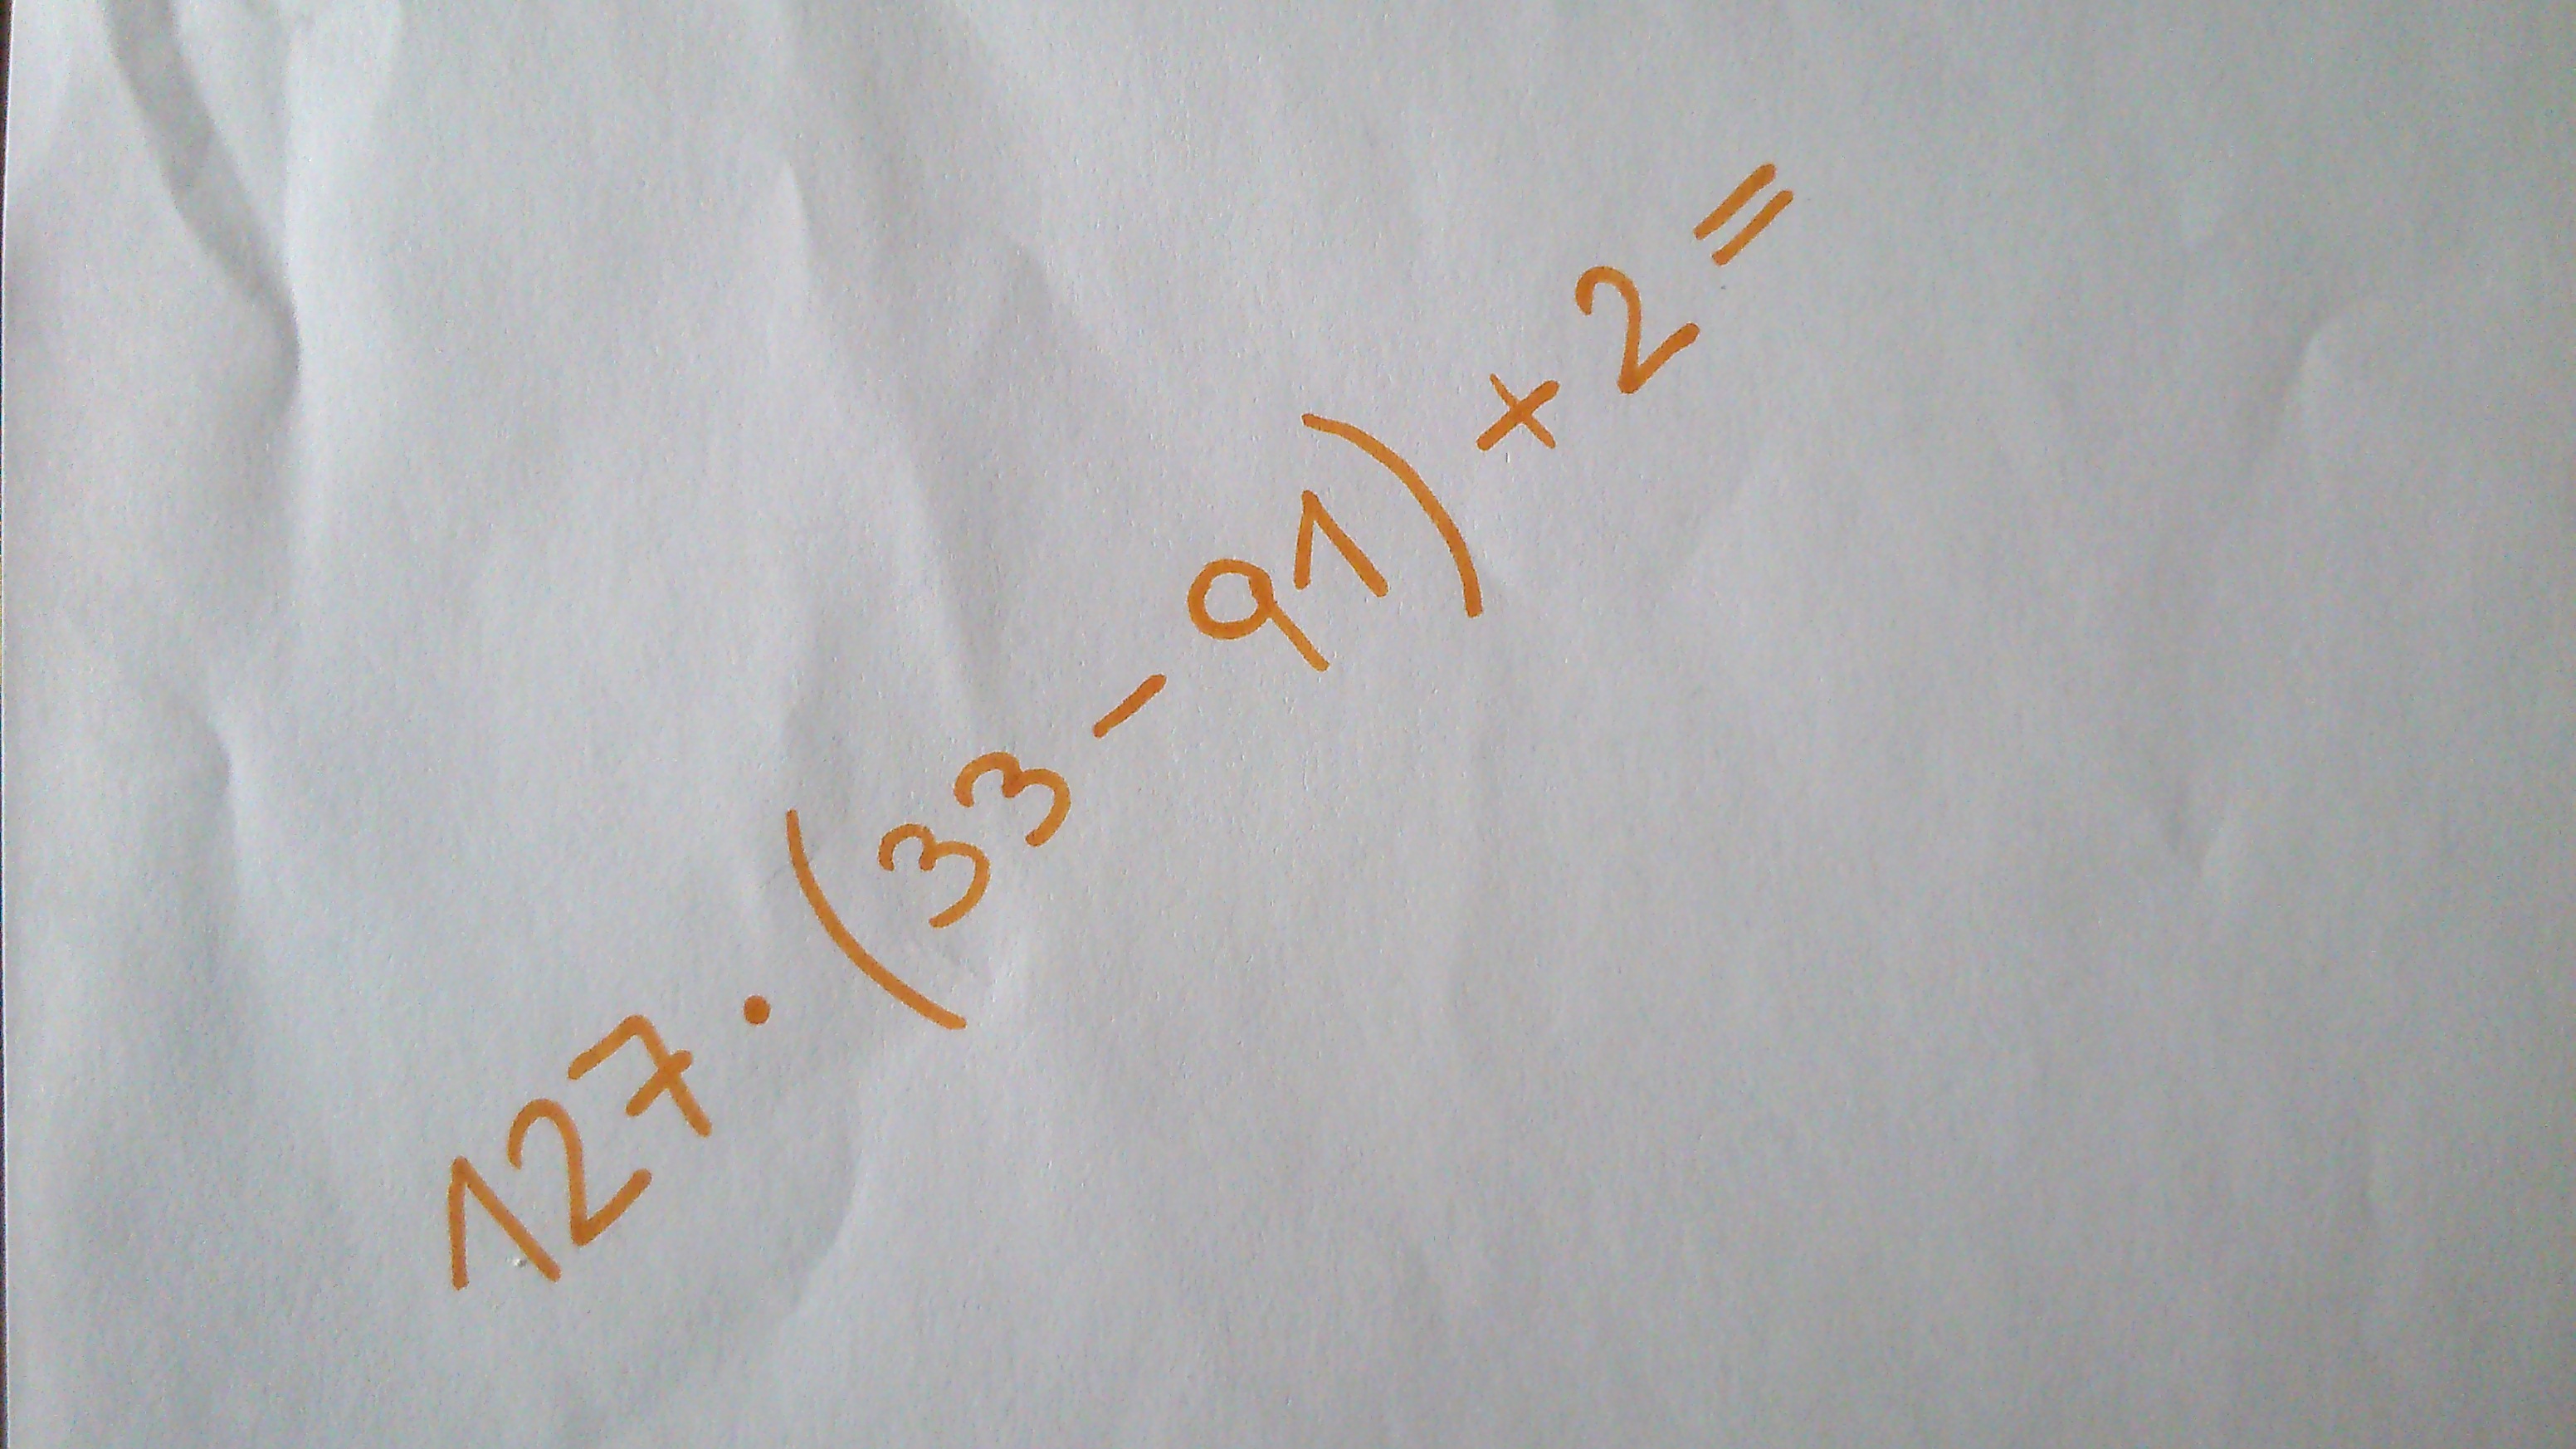 127 · (33 - 91) + 2 =